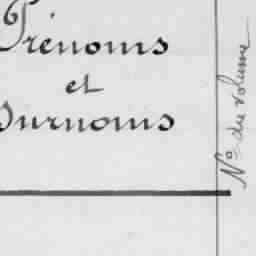 Prénoms
et
Surnoms
No du volume